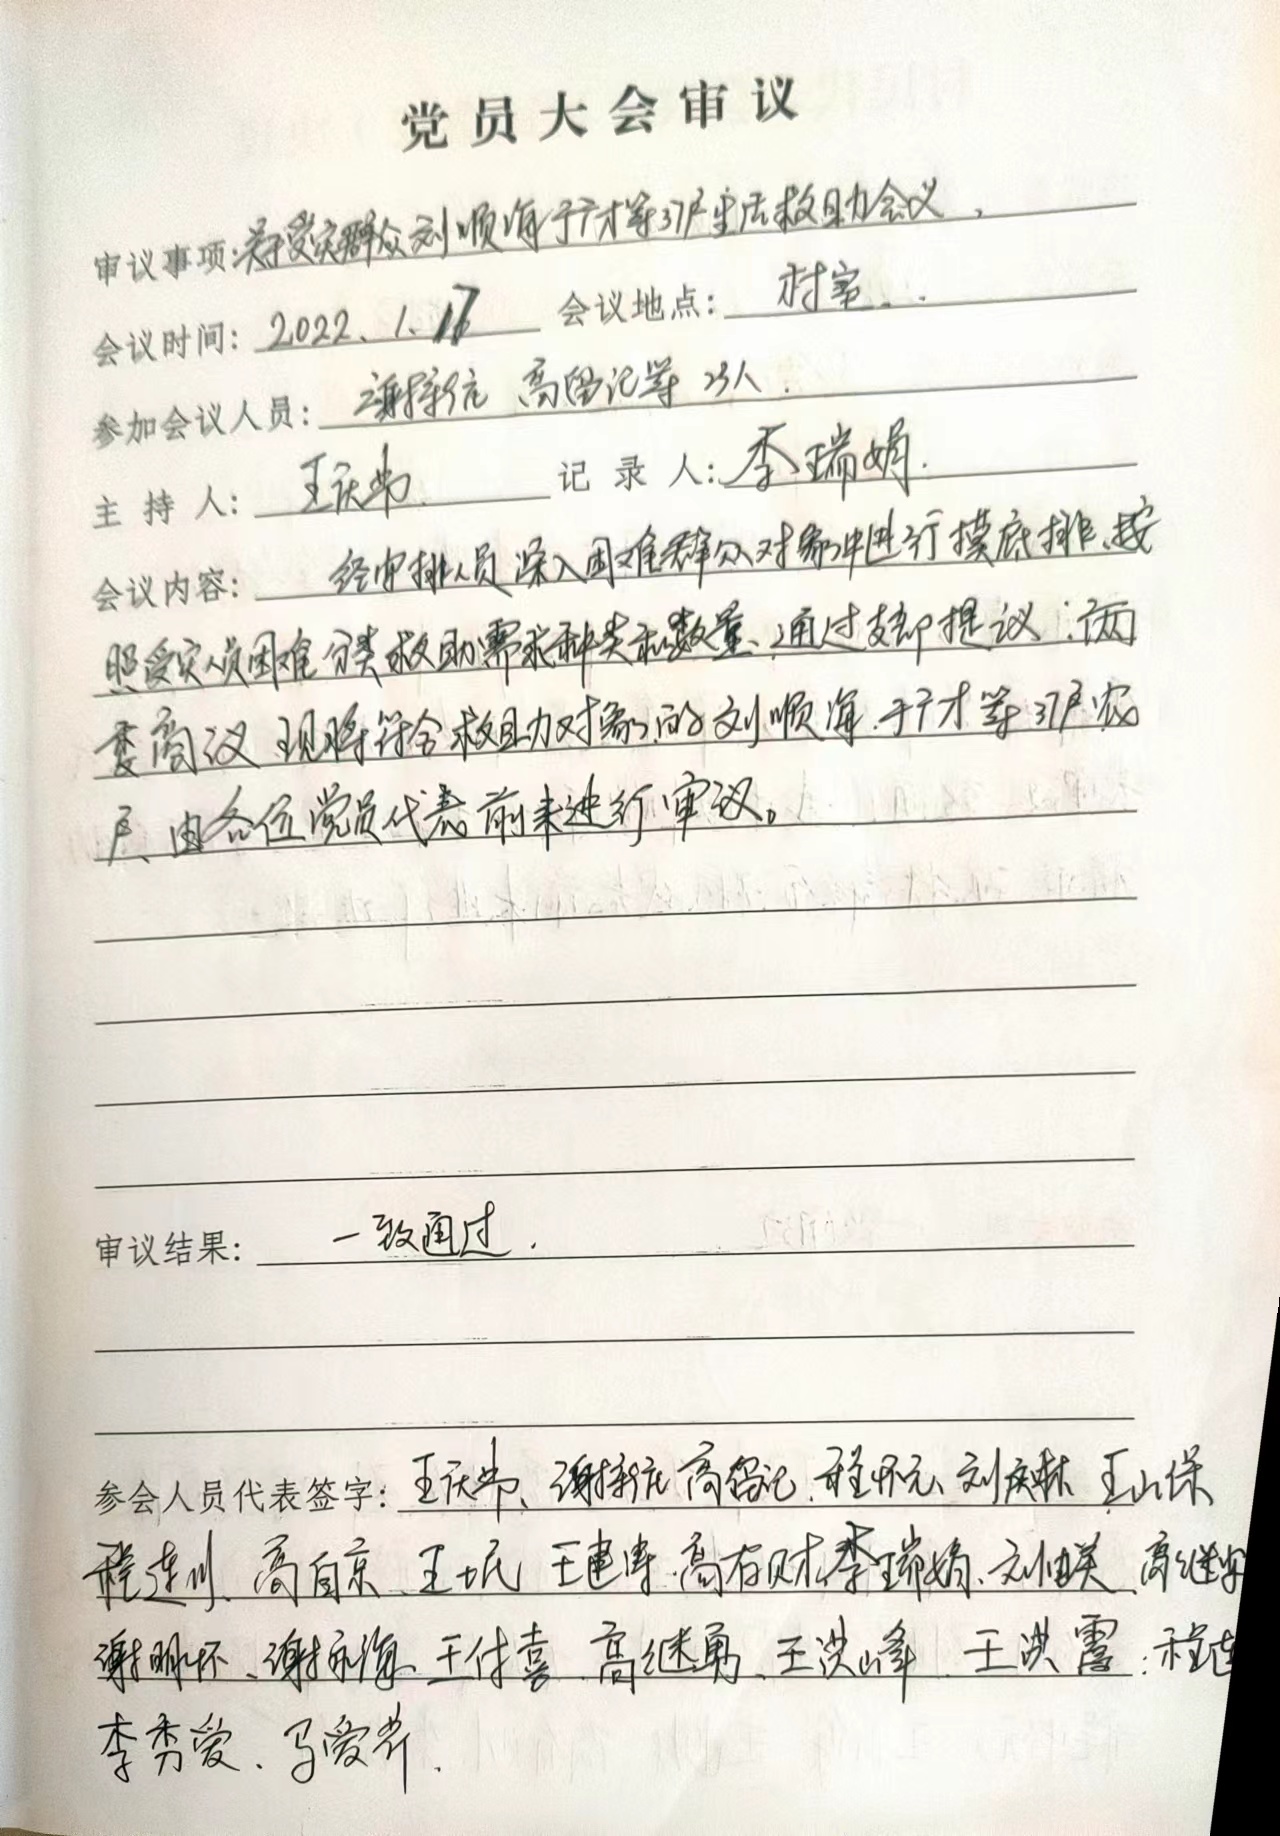 党员大会审议
审议事项:关于受灾群众刘顺海于广才等37户生活救助会议.
会议时间:2022.1.17 会议地点:村室..
参加会议人员:谢新庄 高留记等23人.
主持人:王庆 记录人:李瑞娟.
会议内容:经审排人员深入困难群众对象中进行摸底排、按
照受灾人员困难分类救助需求种类和数量、通过支部提议;两
委商议、现将符合救助对象的刘顺海、于广才等37户农
户、由各位党员代表前来进行审议。
审议结果:一致通过.
参会人员代表签字:王庆、谢新庄 高留记、程怀元、刘庆林 王山保
程连川、高自京、王民 王建 高有财 李瑞娟、刘英、高继
谢明怀、谢永海、王付喜、高继勇、王洪峰 王洪 程连
李秀爱、马爱芹.